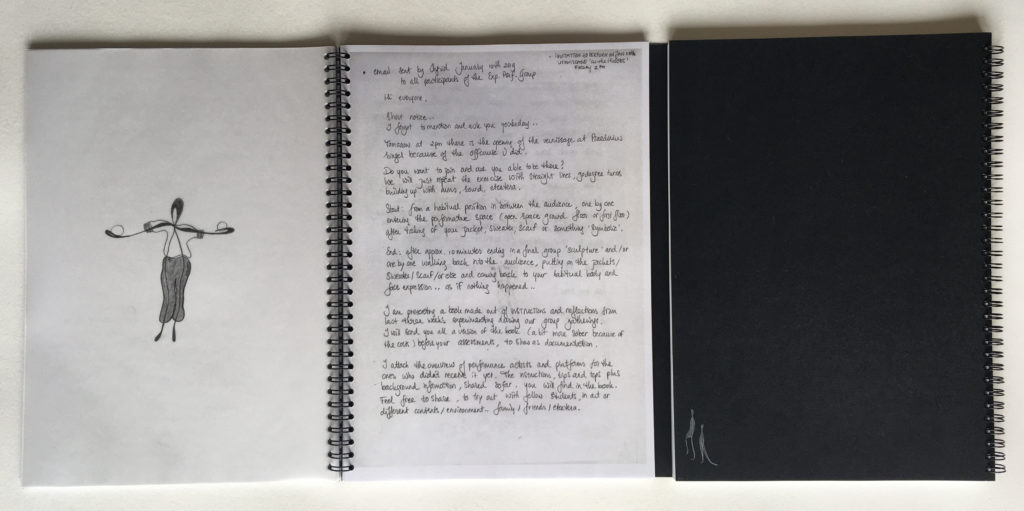 - INVITATION TO PERFORM ON JAN 11th
Friday 2 PM
• email sent by Astrid January 10th 2019
to all participants of the Exp. Perf. Group
Hi everyone,
Short notice..
I forgot to mention and ask you yesterday..
Tomorrow at 2pm there is the opening of the vernissage at
Singel because of the offcourse I did.
Do you want to join and are you able to be there?
We will just repeat the exercise with straight lines, 90degree turns
building up with arms, sound, etcetera.
Start: from a habitual position in between the audience, one by one
entering the performative space (open space ground floor or first floor)
after taking of your jacket, sweater, scarf or something 'symbolic'.
End: after approx. 10 minutes ending in a final group 'sculpture' and/or
one by one walking back into the audience, putting on the jackets/
sweater/scarf/or else and coming back to your habitual body and
face expression.. as if nothing happened..
I am presenting a book made out of instructions and reflections from
last three weeks experimenting during our group gatherings.
I will send you all a version of the book (a bit more sober because of
the costs) before your assessments, to show as documentation.
I attach the overview of performance artists and platforms for the
ones who didn't receive it yet. The instructions, tips and tops plus
background information, shared sofar, you will find in the book.
Feel free to share, to try out with fellow students, in act or
different contexts/environment.. family/friends/etcetera.